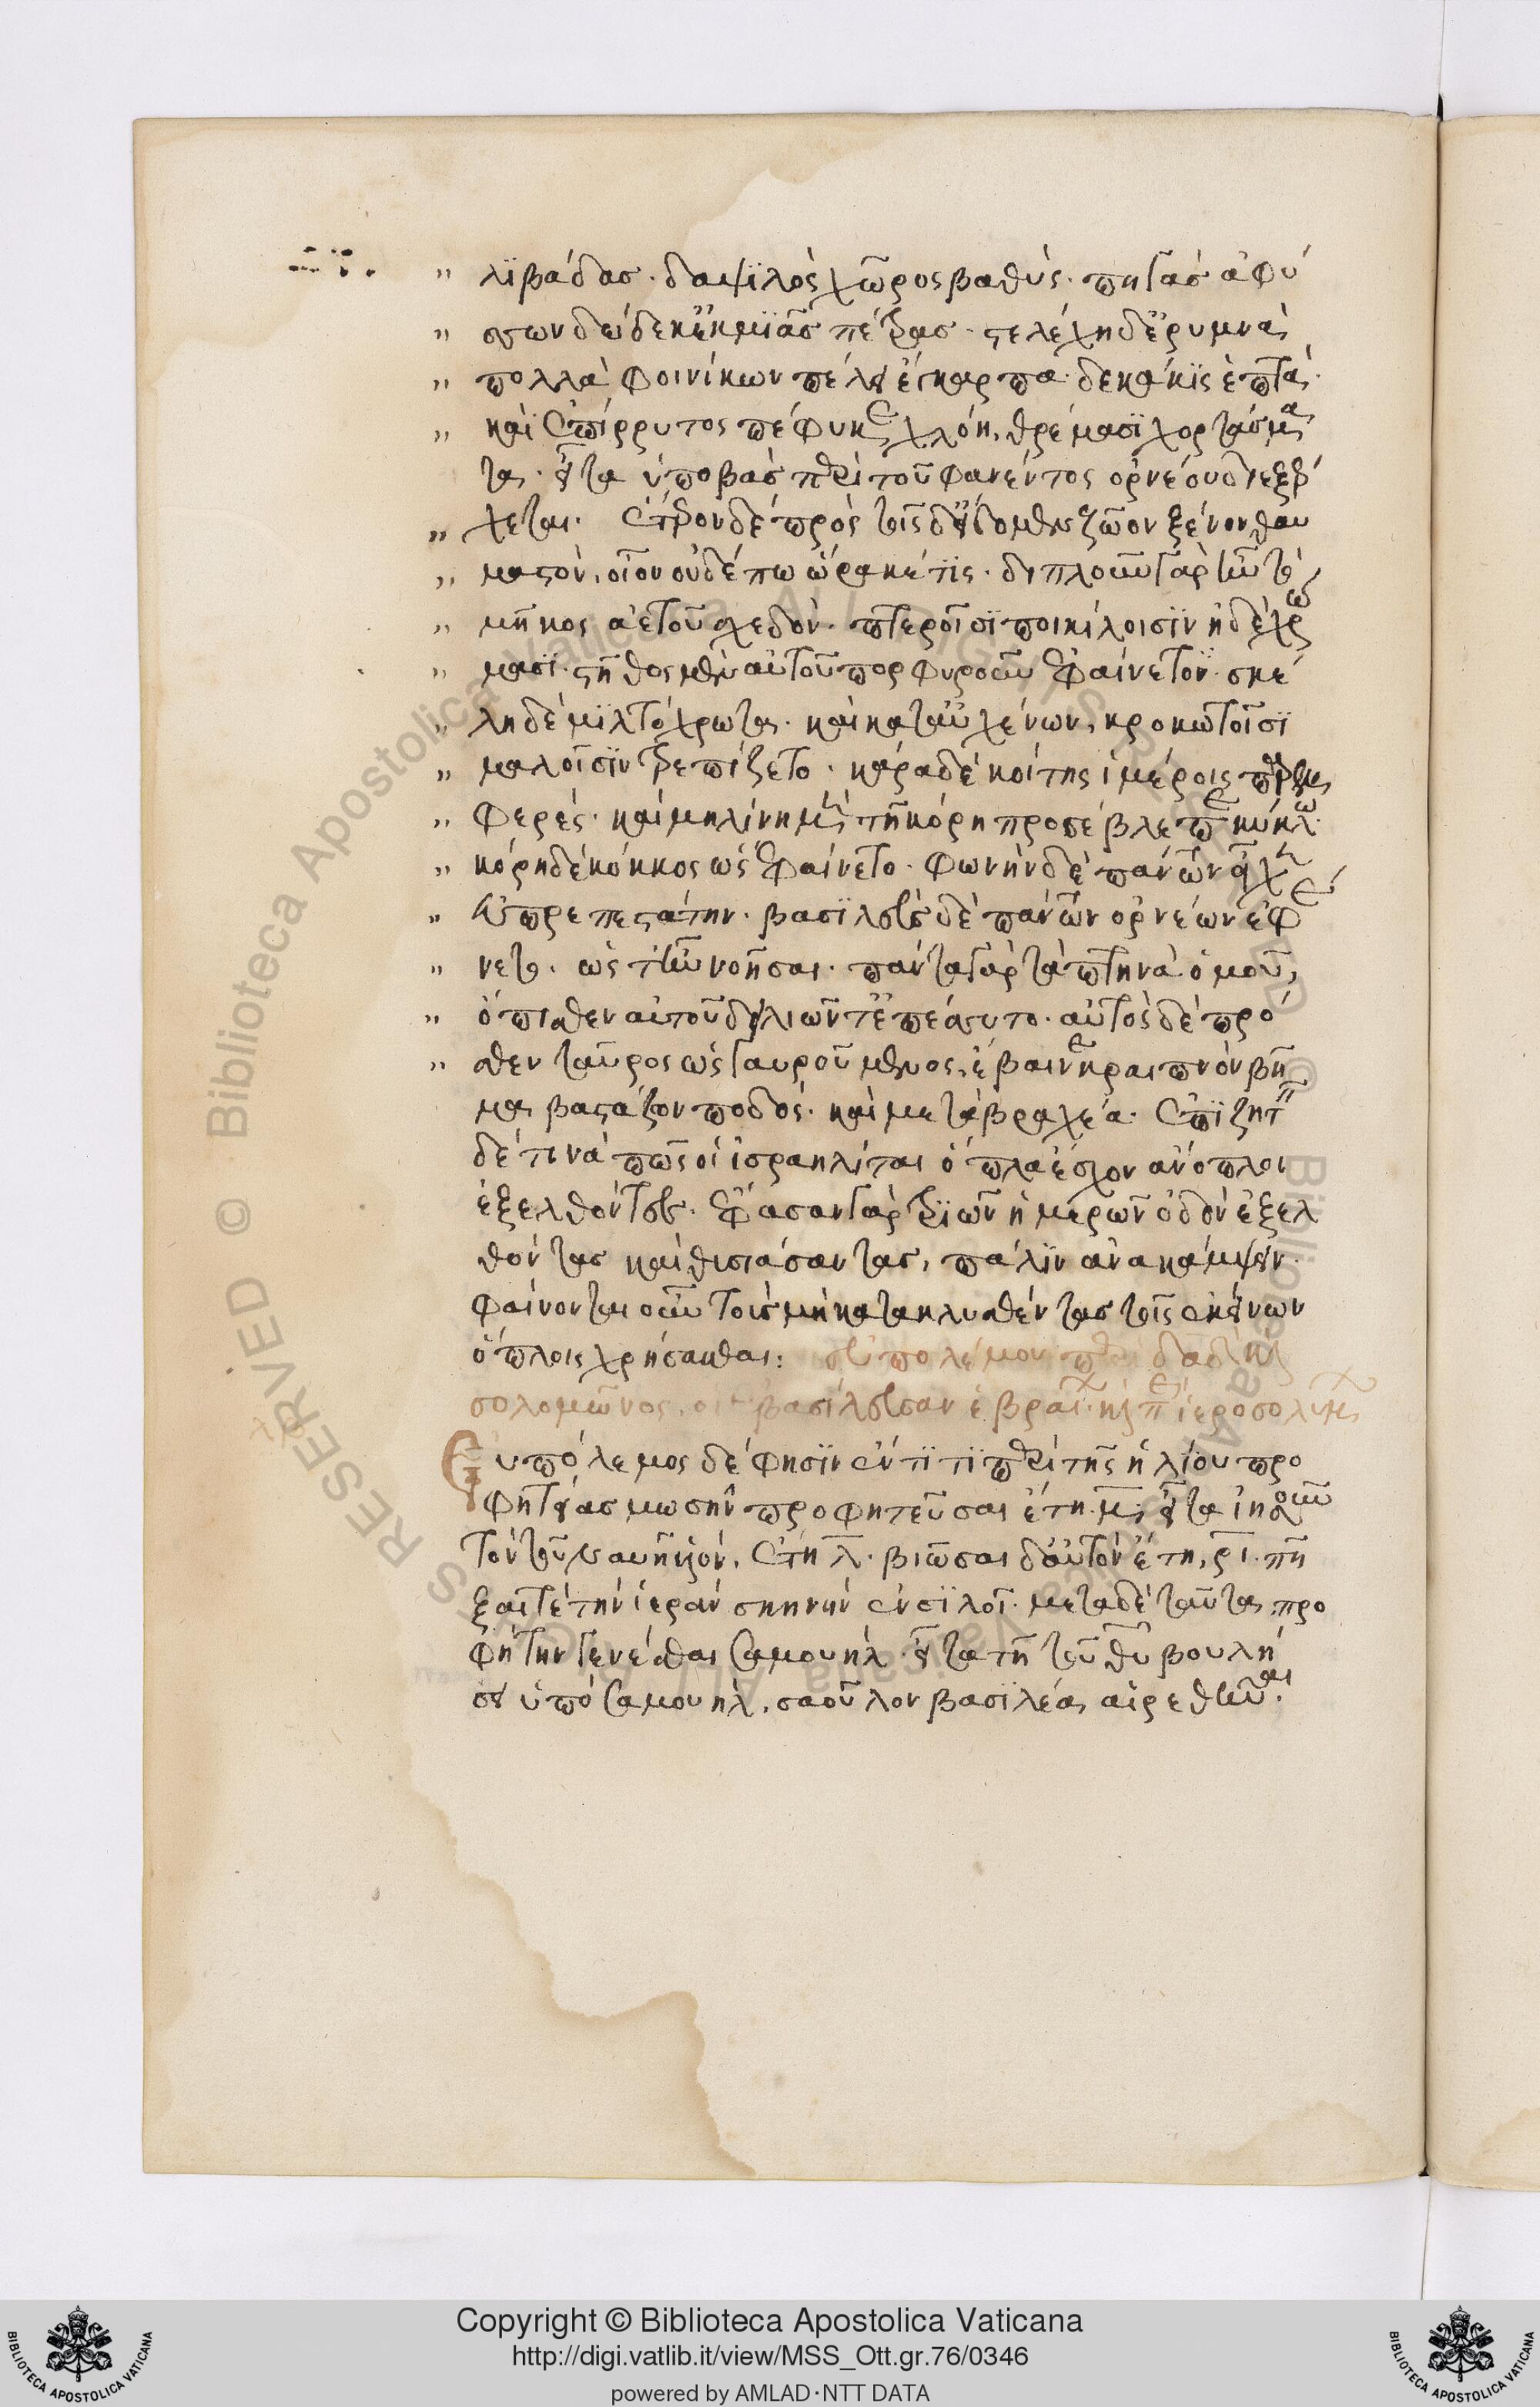 λϊβάδας. δαψϊλὸς χῶρος βαθὺς. πηγὰς ἀφύ
σσων δώδεκ' ἐκ μϊᾶς πέτρας. στελέχη δ' ἐρυμνὰ
πολλὰ φοινίκων πέλει ἔγκαρπα. δεκάκϊς ἑπτά.
καὶ ἐπίρρυτος πέφυκε χλόη, θρέμασϊ χορτάσμα
τα. εἶτα ὑποβὰς περὶ τοῦ φανέντος ὀρνέου διεξέρ
χεται. ἕτερον δὲ πρὸς τοῖς δ' εἴδομεν ζῶον ξένον θαυ
μαστὸν, οἷον οὐδέπω ὥρακέ τϊς. διπλοῦν γὰρ ἦν τὸ
μῆκος ἀετοῦ σχεδὸν. πτεροῖσϊ ποικίλοισϊν ἠδὲ χρώ
μασϊ. στῆθος μὲν αὐτοῦ πορφυροῦν ἐφαίνετο. σκέ
λη δὲ μϊλτόχρωτα. καὶ κατ' αὐχένων, κροκωτοῖσϊ
μαλοῖσϊν τρεπίζετο. κάρα δὲ κοίτης ἱμέροις παρεμ
φερές. καὶ μηλίνη μὲν τῇ κόρῃ προσέβλεπε κύκλω.
κόρη δὲ κόκκος ὡς ἐφαίνετο. φωνὴν δὲ πάντων εἶχεν
εὐπρεπεστάτην. βασϊλεὺς δὲ πάντων ὀρνέων ἐφαί
νετο. ὡς ἦν νοῆσαι. πάντα γὰρ τὰ πτηνὰ ὁμοῦ,
ὄπισθεν αὐτοῦ δειλιῶντ' ἐπέσσυτο. αὐτὸς δὲ πρό
σθεν ταῦρος ὡς γαυρούμενος, ἔβαινε κραιπνὸν βῆ
μα βαστάζων ποδός. καὶ μετὰ βραχέα. ἐπϊζητεῖν
δέ τινα πῶς οἱ ἰσραηλῖται ὅπλα ἔσχον ἄνοπλοι
ἐξελθόντες. ἔφασαν γὰρ τριῶν ἡμερῶν ὁδὸν ἐξελ
θόντας καὶ θυσιάσαντας, πάλϊν ἀνακάμψειν.
φαίνονται οὖν τοὺς μὴ κατακλυσθέντας τοῖς ἐκείνων
ὅπλοις χρήσασθαι: εὐπολέμου περὶ δαδ καὶ
σολομῶνος, οἳ ἐβασίλευσαν ἑβραί. καὶ περὶ ἱεροσολύμων
Εὐπόλεμος δέ φησϊν ἔν τϊνϊ περὶ τῆς ἡλίου προ
φητείας μωσῆν προφητεῦσαι ἔτη μ. εἶτα ἰησοῦν
τὸν τοῦ ναυῆ υἱὸν, ἔτη λ. βιῶσαι δ' αὐτὸν ἔτη, ρι. πῆ
ξαι τὲ τὴν ἱερὰν σκηνὴν ἐν σϊλοῖ. μετα δὲ ταῦτα, προ
φήτην γενέσθαι σαμουήλ. εἶτα τῇ τοῦ θυ βουλή
σει ὑπὸ σαμουὴλ, σαοῦλον βασϊλέα αἱρεθῆναι.
Copyright © Biblioteca Apostolica Vaticana
http://digi.vatlib.it/view/MSS_Ott.gr.76/0346
powered by AMLAD·NTT DATA